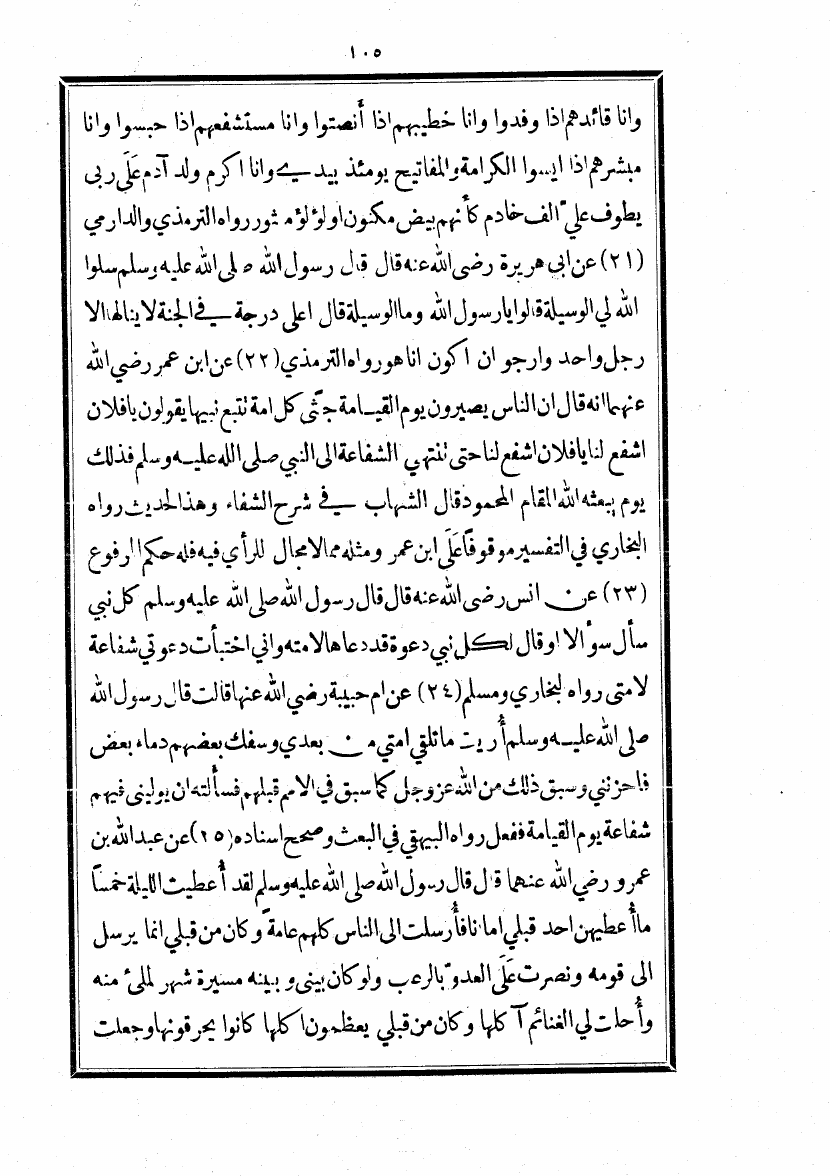 ١٠٥
وانا قائدهم اذا وفدوا وانا خطيبهم اذا أنصتوا وانا مستشفعهم اذا حبسوا وانا
مبشرهم اذا ايسوا الكرامة والمفاتيح يومئذ بيدي وانا اكرم ولد آدم على ربى
يطوف علي الف خادم كأنهم بيض مكنون او لؤلؤ منثور رواه الترمذي والدارمي
(٢١) عن ابى هريرة رضى الله عنه قال قال رسول الله صلى الله عليه وسلم سلوا
الله لي الوسيلة قالوا يا رسول الله وما الوسيلة قال اعلى درجة في الجنة لا ينالها الا
رجل واحد وارجو ان اكون انا هو رواه الترمذي (٢٢) عن ابن عمر رضي الله
عنهما انه قال ان الناس يصيرون يوم القيامة جثى كل امة تتبع نبيها يقولون يا فلان
اشفع لنا يا فلان اشفع لنا حتى تنتهي الشفاعة الى النبي صلى الله عليه وسلم فذلك
يوم يبعثه الله المقام المحمود قال الشهاب في شرح الشفاء وهذا الحديث رواه
البخاري في التفسير موقوفًا على ابن عمر ومثله مما لا مجال للرأي فيه فله حكم المرفوع
(٢٣) عن انس رضى الله عنه قال قال رسول الله صلى الله عليه وسلم كل نبي
سأل سؤالا او قال لكل نبي دعوة قد دعا بها لامته واني اختبأت دعوتي شفاعة
لامتى رواه البخاري ومسلم (٢٤) عن ام حبيبة رضي الله عنها قالت قال رسول الله
صلى الله عليه وسلم أُريت ما تلقى امتي من بعدي وسفك بعضهم دماء بعض
فاحزنني وسبق ذلك من الله عز وجل كما سبق في الامم قبلهم فسألته ان يوليني فيهم
شفاعة يوم القيامة ففعل رواه البيهقي في البعث وصحح اسناده (٢٥) عن عبد الله بن
عمرو رضي الله عنهما قال قال رسول الله صلى الله عليه وسلم لقد أُعطيت الليلة خمسًا
ما أُعطيهن احد قبلي اما انا فأُرسلت الى الناس كلهم عامةً وكان من قبلي انما يرسل
الى قومه ونصرت على العدوّ بالرعب ولو كان بيني وبينه مسيرة شهر لملئ منه
وأُحلت لي الغنائم آكلها وكان من قبلي يعظمون اكلها كانوا يحرقونها وجعلت